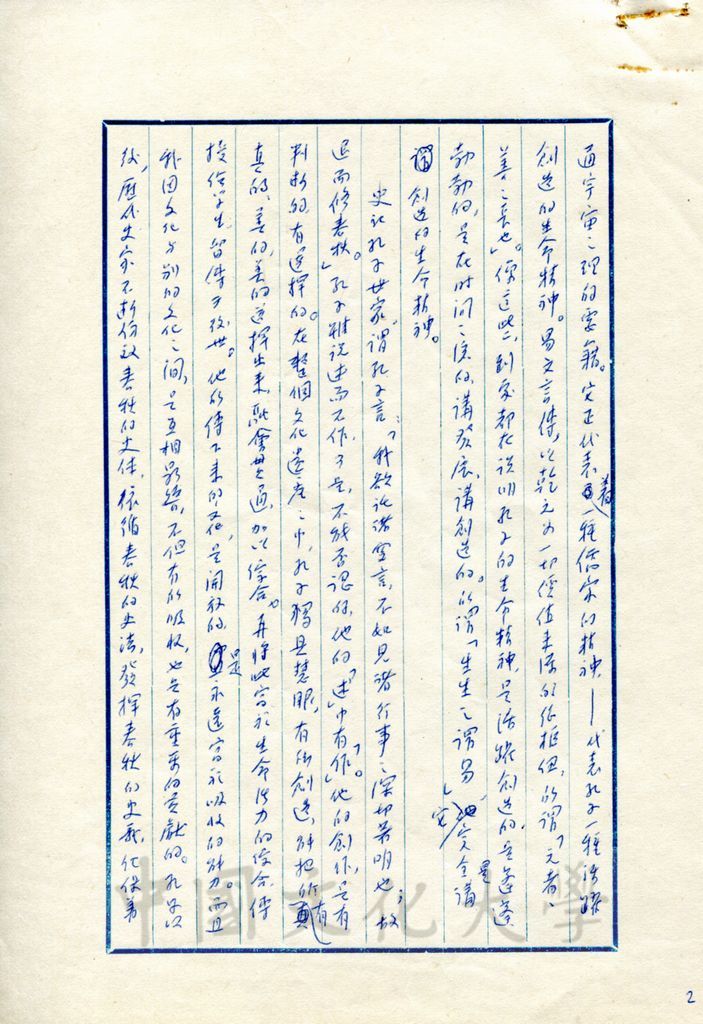 通宇宙之理的要籍。它正代表着一種儒家的精神——代表孔子一種活躍
創造的生命精神。易文言傳,以乾元為一切價值來源的依據,所謂「元者、
善之長也」。像這些,到家都在說明孔子的生命精神,是活躍創造的,是蓬蓬
勃勃的,是在時間之流的,講發展,講創造的。所謂「生生之謂易」,它是完全講
創造的生命精神。
史記孔子世家。謂孔子言:「我欲託諸空言,不如見諸行事之深切著明也;故
退而修春秋。」孔子雖說述而不作,可是,不能否認的,他的「述」中有「作」。他的創作,是有
判斷的,有選擇的。在整個文化遺產之中,孔子獨具慧眼,有所創造,能把所有
真的、善的、美的選擇出來,融會貫通,加以綜合。再將此富於生命活力的綜合,傳
授給學生,留傳于後世。他所傳下來的文化,是開放的,是永遠富於吸收的能力。而且
我國文化與別的文化之間,是互相影響,不但有所吸收,也是有重要的貢獻的。孔子以
後,歷代史家不斷仿效春秋的史體,依循春秋的史法,發揮春秋的史義,化保著
中國文化大學
2